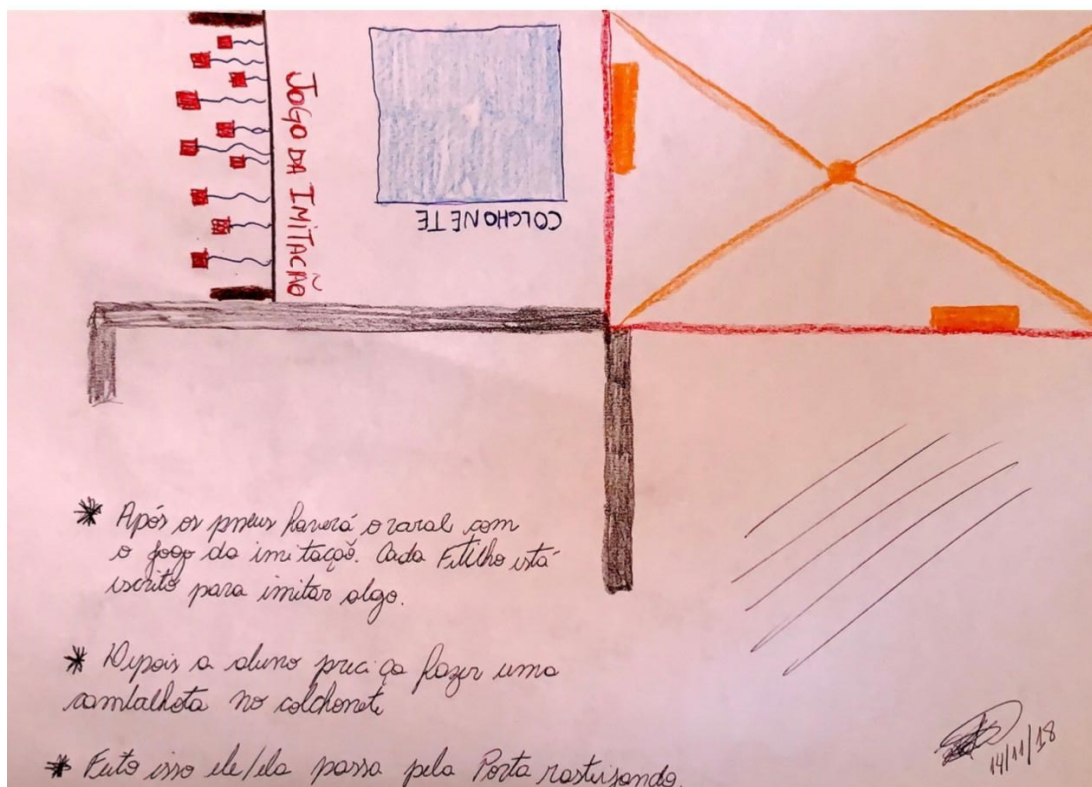 JOGO DA IMITAÇÃO
COLCHONETE
* Após os pneus haverá o varal com
o jogo da imitação. Cada Fitilho está
escrito para imitar algo.
* Depois a aluno preciça fazer uma
cambalhota no colchonete
* Feito isso ele/ela passa pela Porta rastejando.
14/11/18